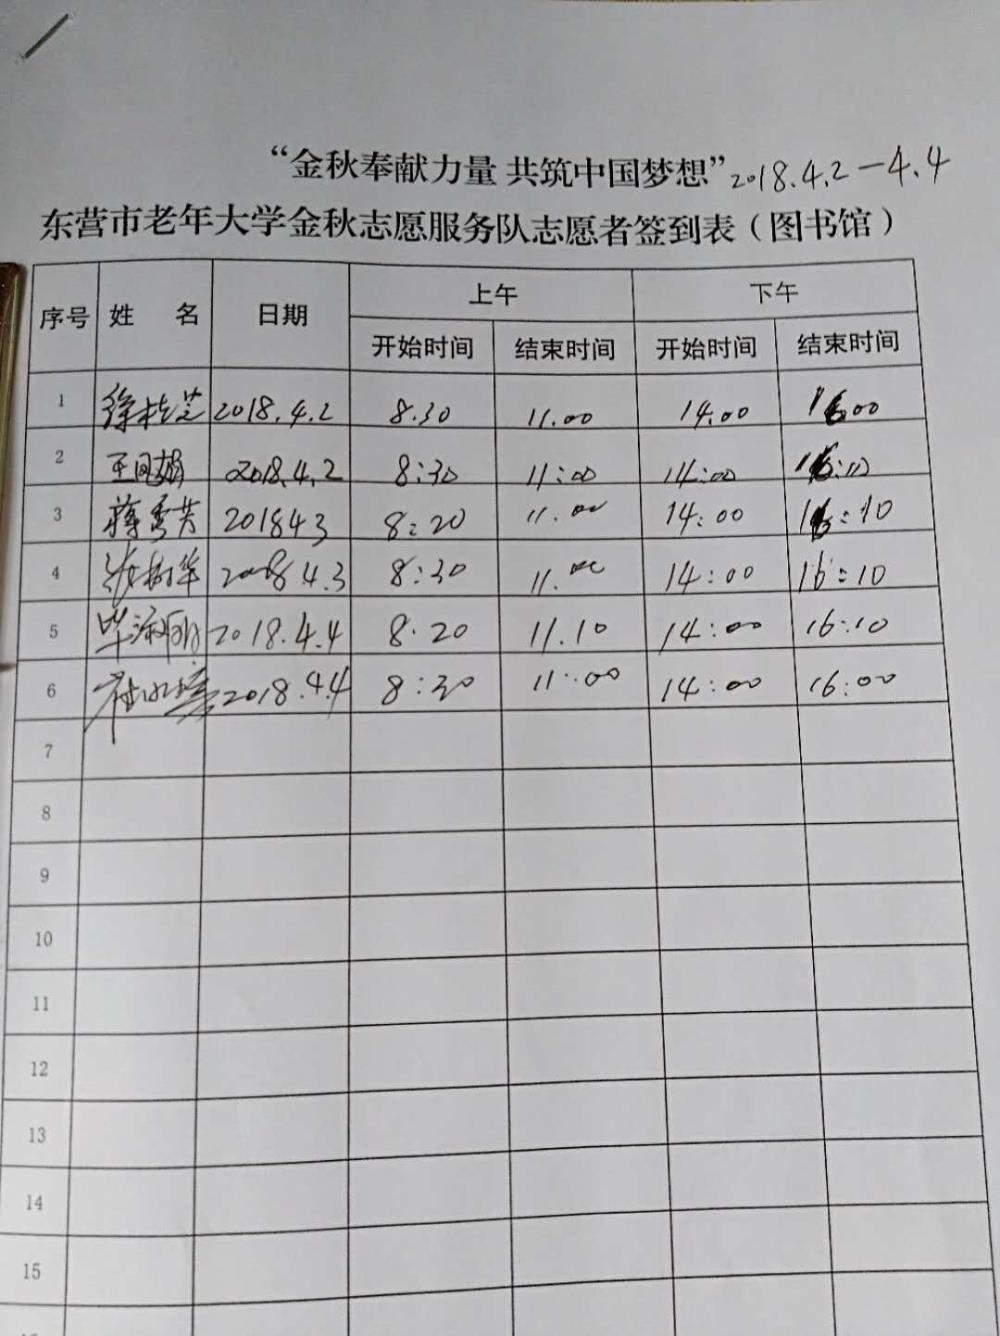 “金秋奉献力量 共筑中国梦想” 2018.4.2-4.4
东营市老年大学金秋志愿服务队志愿者签到表（图书馆）
序号 姓 名 日期 上午 下午
开始时间 结束时间 开始时间 结束时间
1 徐桂芝 2018.4.2 8.30 11.00 14.00 16.00
2 王凤娟 2018.4.2 8:30 11:00 14:00 16:10
3 蒋秀芳 201843 8:20 11.00 14:00 16:10
4 2018 4.3 8:30 11.00 14:00 16:10
5 2018.4.4 8.20 11.10 14:00 16:10
6 2018.4.4 8:30 11:00 14:00 16:00
7
8
9
10
11
12
13
14
15